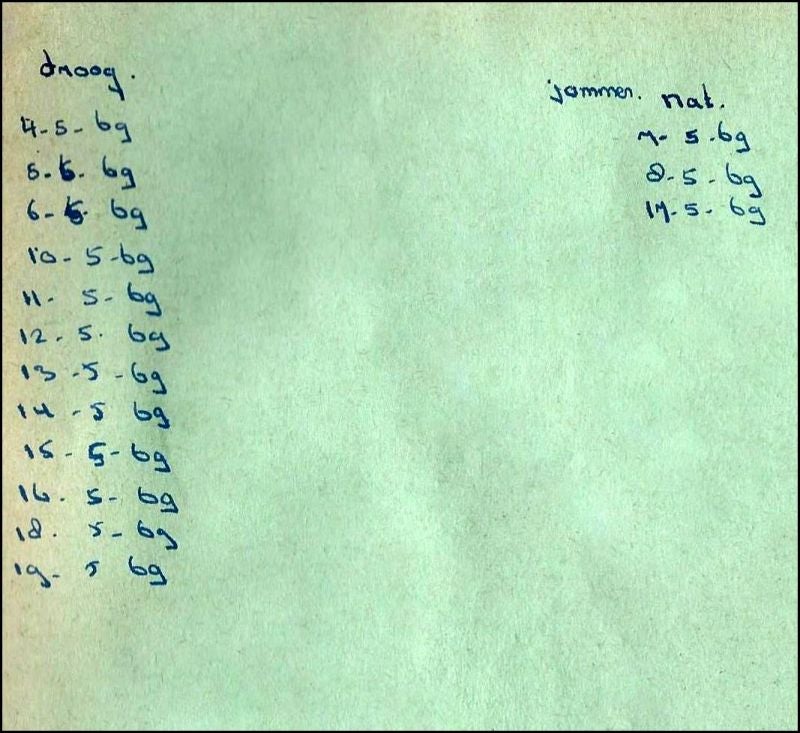 droog.
4-5-69
5-5-69
6-5-69
10-5-69
11-5-69
12-5-69
13-5-69
14-5 69
15-5-69
16-5-69
18.5-69
19-5 69
jammer. nat.
7-5-69
8-5-69
17-5-69